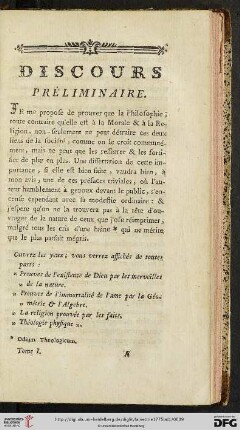 DISCOURS
PRÉLIMINAIRE.
JE me propose de prouver que la Philosophie,
toute contraire qu'elle est à la Morale & à la Re-
ligion, non-seulement ne peut détruire ces deux
liens de la société, comme on le croit communé-
ment, mais ne peut que les resserrer & les forti-
fier de plus en plus. Une dissertation de cette im-
portance, si elle est bien faite, vaudra bien, à
mon avis, une de ces préfaces triviales, où l'au-
teur humblement à genoux devant le public, s'en-
cense cependant avec sa modestie ordinaire: &
j'espere qu'on ne la trouvera pas à la tête d'ou-
vrages de la nature de ceux que j'ose réimprimer,
malgré tous les cris d'une haine * qui ne mérite
que le plus parfait mépris.
Ouvrez les yeux; vous verrez affichés de toutes
parts:
„ Preuves de l'existence de Dieu par les merveilles
„ de la nature.
„ Preuves de l'immortalité de l'ame par la Géo-
„ métrie & l'Algebre.
„ La religion prouvée par les faits.
„ Théologie physique „.
* Odium Theologicum.
Tome I. A
DFG